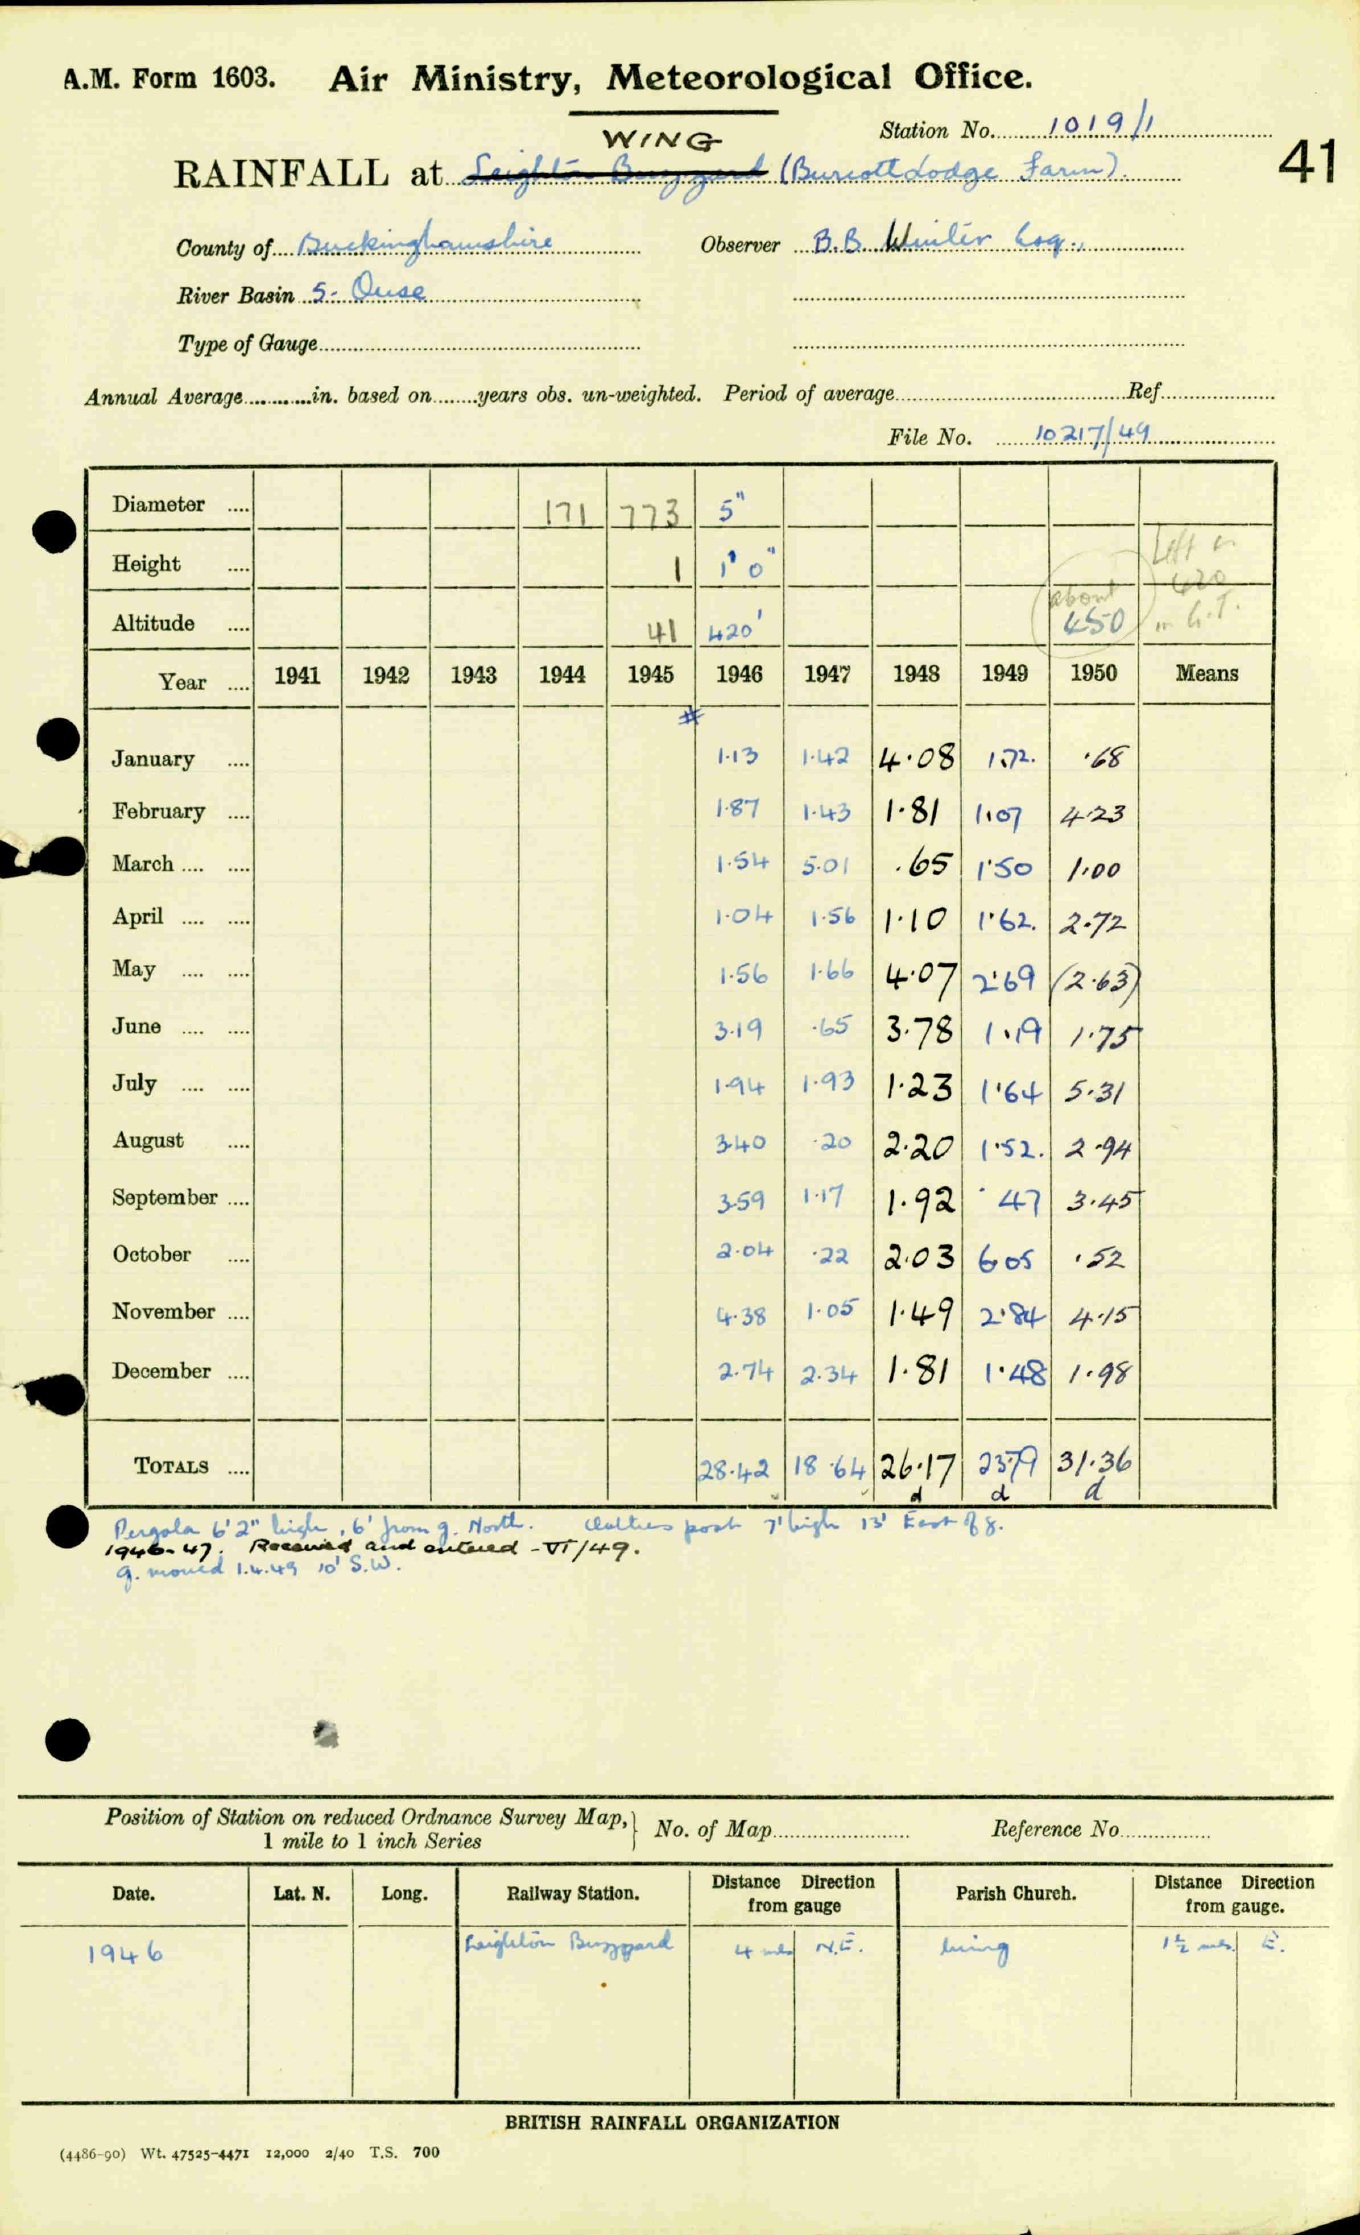 A.M. Form 1603. Air Ministry, Meteorological Office.
Station No. 1019/1
WING
41
RAINFALL at Leighton Buzzard (Burcott Lodge Farm).
County of Buckinghamshire Observer B.B. Winter Esq.,
River Basin 5- Ouse
Type of Gauge
Annual Average in. based on years obs. un-weighted. Period of average Ref
File No. 10217/49
Diameter 171 773 5"
Height 1 1' 0" Left
Altitude 41 420' about 450 420 in
Year 1941 1942 1943 1944 1945 1946 1947 1948 1949 1950 Means
#
January 1.13 1.42 4.08 1.72. .68
February 1.87 1.43 1.81 1.07 4.23
March 1.54 5.01 .65 1.50 1.00
April 1.04 1.56 1.10 1.62. 2.72
May 1.56 1.66 4.07 2.69 (2.63)
June 3.19 .65 3.78 1.19 1.75
July 1.94 1.93 1.23 1.64 5.31
August 3.40 .20 2.20 1.52. 2.94
September 3.59 1.17 1.92 .47 3.45
October 2.04 .22 2.03 6.05 .52
November 4.38 1.05 1.49 2.84 4.15
December 2.74 2.34 1.81 1.48 1.98
TOTALS 28.42 18.64 26.17 23.79 31.36
d d d
Pergola 6'2" high, 6' from g. North. Clothes post 7' high 13' East of g.
1946-47. Received and entered - VI/49.
g. moved 1.4.49 10' S.W.
Position of Station on reduced Ordnance Survey Map, 1 mile to 1 inch Series No. of Map Reference No
Date. Lat. N. Long. Railway Station. Distance from gauge Direction Parish Church. Distance from gauge. Direction
1946 Leighton Buzzard 4 mls N.E. Wing 1½ mls. E.
BRITISH RAINFALL ORGANIZATION
(4486-90) Wt. 47525-4471 12,000 2/40 T.S. 700